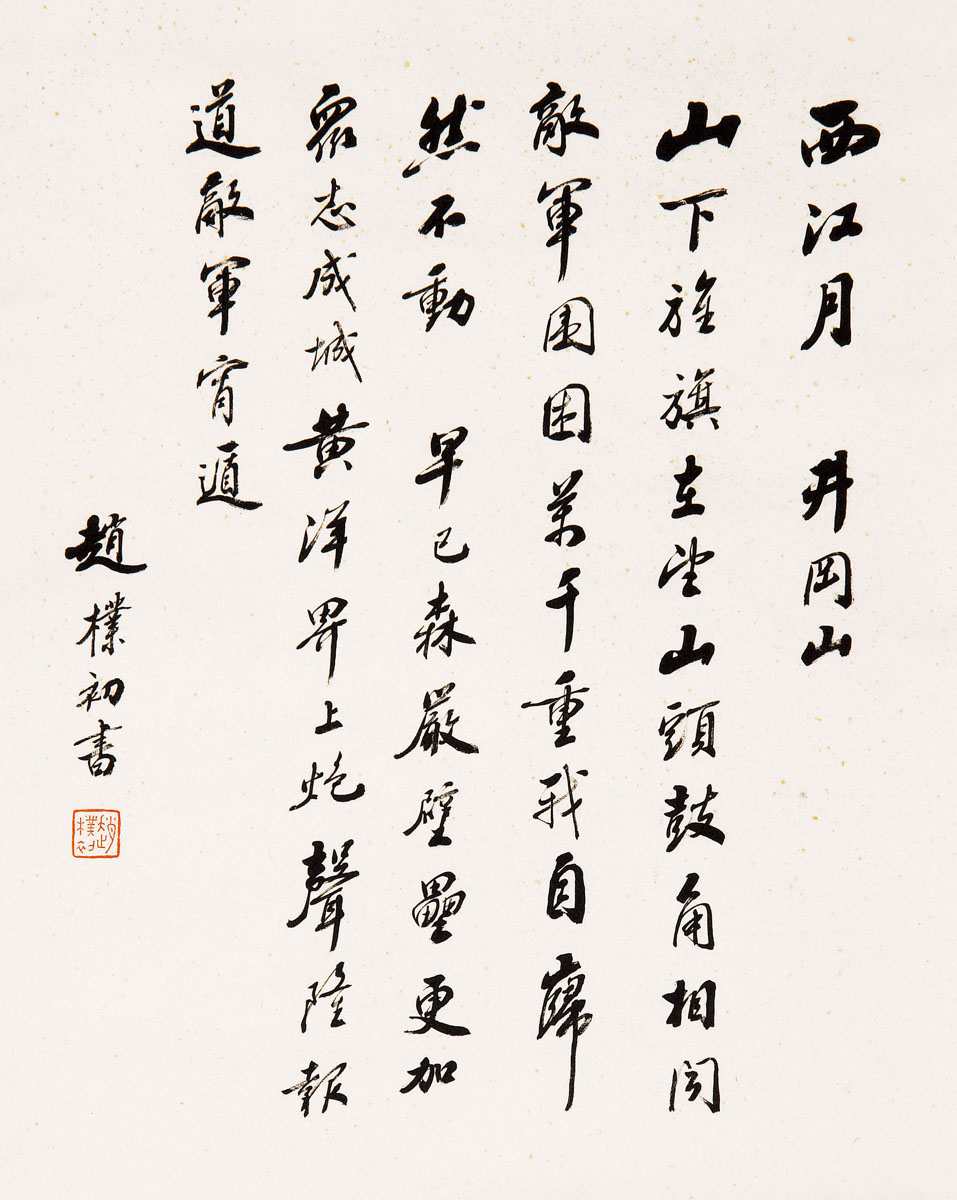 西江月 井岡山
山下旌旗在望山頭鼓角相闻
敵軍围困萬千重我自巋
然不動 早已森嚴壁壘更加
衆志成城黄洋界上炮聲隆報
道敵軍宵遁
趙樸初書
趙樸初